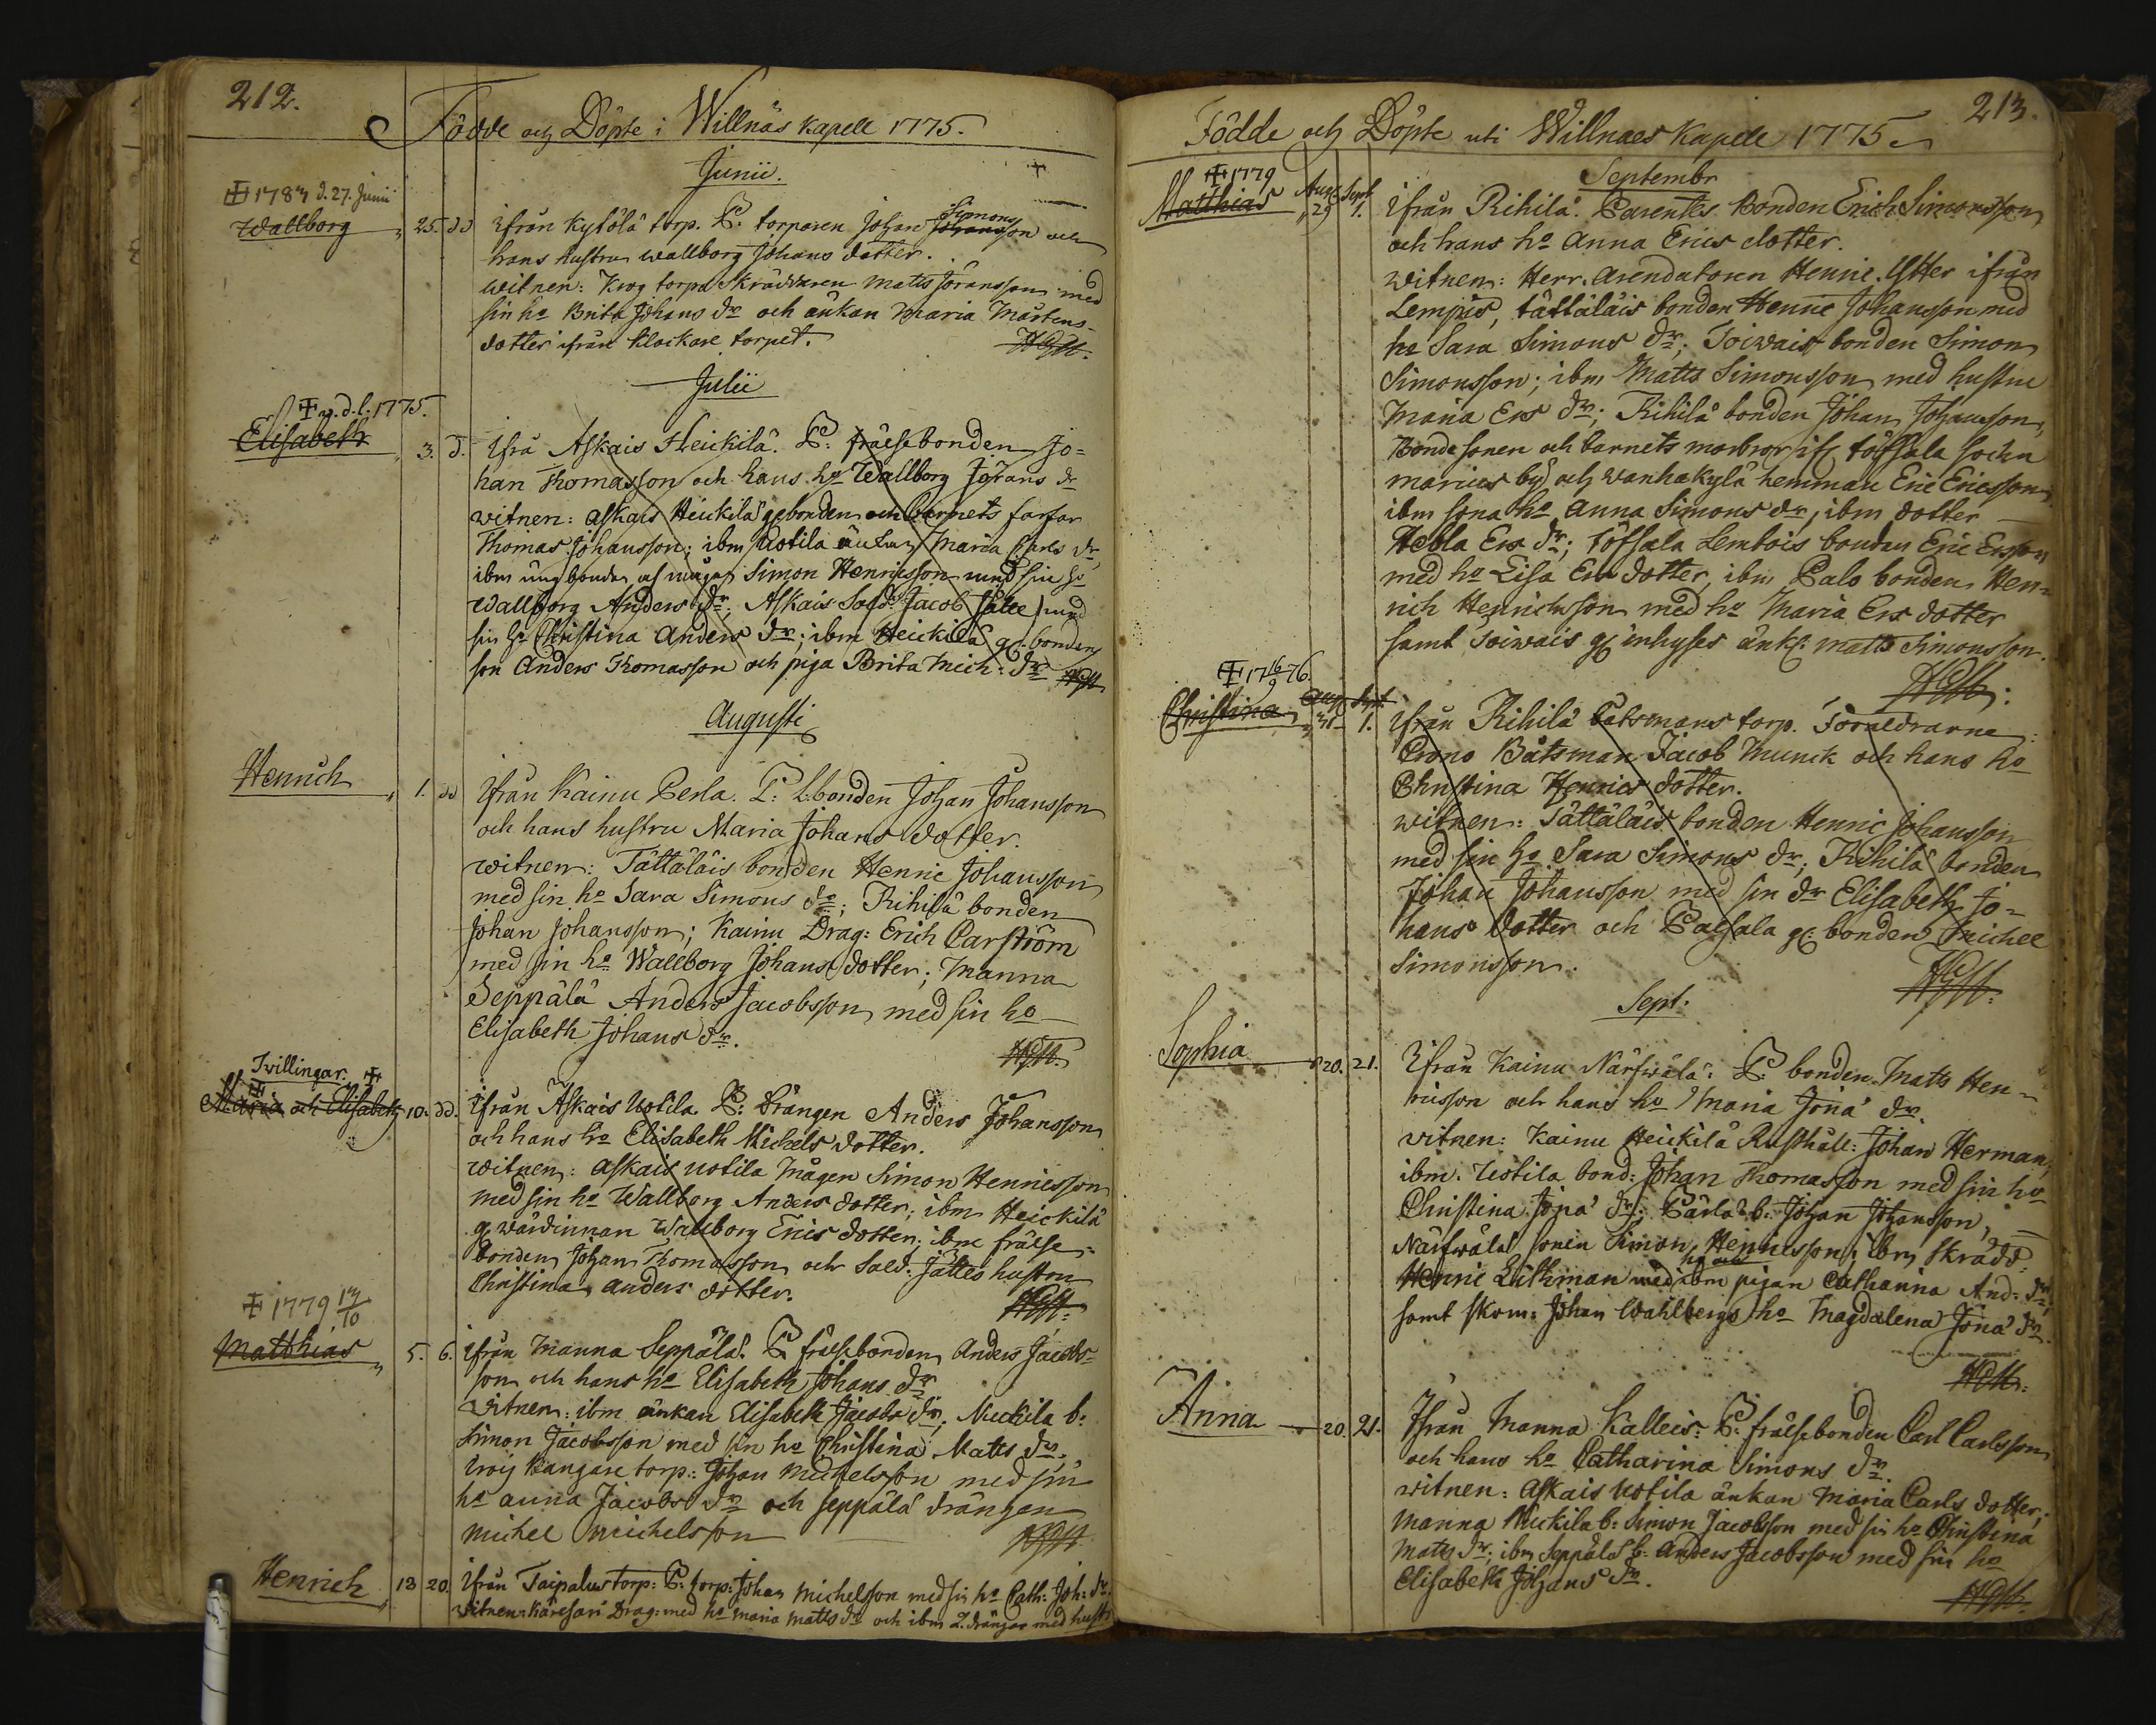 212.
Födde och Döpte i Willnäs Kapell 1775.
Junii.
1783 d. 27. Junii
Wallborg 25. dd Ifrån Kytölä torp. P: torparen Johan Simonsson och
hans hustru Wallborg Johans dotter.
witnen: Krog torps Skräddaren Matts Jöransson med
sin ho Brita Johans dr och änkan Maria Mårtens-
dotter ifrån Klockare torpet.
Julii
1775.
Elisabeth 3. d. Ifrå Askais Heickilä. P: frälsebonden Jo=
han Thomasson och hans ho Wallborg Jörans dr
witnen: Askais Heickilä gl bonden och Barnets farfar
Thomas Johansson; ibm Uotila änkan Maria Carls dr,
ibm ung bonden och mågen Simon Henricsson med sin ho
Wallborg Anders dr; Askais Sold: Jacob Jätte med
sin ho Christina Anders dr; ibm Heickilä gl: bondens
son Anders Thomasson och piga Brita Mich: dr
Augusti
Henrich 1. dd Ifrån Kainu Perla. P: bonden Johan Johansson
och hans hustru Maria Johans dotter.
witnen: Tättäläis bonden Henric Johansson
med sin ho Sara Simons dr; Rihilä bonden
Johan Johansson; Kainu Drag: Erich Carström
med sin ho Wallborg Johans dotter; Manna
Seppälä Anders Jacobsson med sin ho
Elisabeth Johans dr.
Tvillingar.
Maria och Elisabeth 10. dd. Ifrån Askais Uotila. P: Drängen Anders Johansson
och hans ho Elisabeth Michels dotter.
witnen: Askais Uotila Mågen Simon Henricsson
med sin ho Wallborg Anders dotter; ibm Heickilä
gl wärdinnan Wallborg Erics dotter; ibm frälse=
bonden Johan Thomasson och Sold: Jättes hustru
Christina Anders dotter.
1779 13/10
Matthias 5. 6. Ifrån Manna Seppälä. P frälsebonden Anders Jacobs=
son och hans ho Elisabeth Johans dr
witnen: ibm änkan Elisabeth Jacobs dr; Nuckila b:
Simon Jacobsson med sin ho Christina Matts dr.
Kangare torp: Johan Michelsson med sin
ho Anna Jacobs dr och Seppälä drängen
Michel Michelsson
Henrich 13 20. Ifrån Taipalus torp: P: torp: Johan Michelsson med sin ho Cath: Joh: dr.
witnen: Käresari Drag: med ho Maria Matts dr och ibm 2. drängar med hustr
213.
Födde och Döpte uti Willnaes Kapell 1775
Septembr
1779
Aug. Sept.
Matthias 29 1. Ifrån Rihilä. Parentes Bonden Erich Simonsson
och hans ho Anna Erics dotter.
witnen: Herr Arendatoren Henric ifrån
Lempis, tättäläis bonden Henric Johansson med
ho Sara Simons dr; Toiwais bonden Simon
Simonsson; ibm Matts Simonsson med hustru
Maria Ers dr; Rihilä bonden Johan Johansson,
Bonde sonen och barnets morbror ifr Töfsala sochn
by och Wanhakylä hemman Eric Ericsson
ibm sona ho Anna Simons dr, ibm dotter
Hebla Ers dr; Töfsala Lembois bonden Eric Ersson
med ho Lisa Ers dotter, ibm Palo bonden Hen=
rich Henrichsson med ho Maria Ers dotter
samt Toiwais gl inhyses änkl: Matts Simonsson.
1776
Aug Sept.
Christina 31 1. Ifrån Rihilä Båtsmans torp. Föräldrarne:
Crono Båtsman Jacob Munck och hans ho
Christina Henrics dotter.
witnen: Tättäläis bonden Henric Johansson
med sin ho Sara Simons dr; Rihilä bonden
Johan Johansson med sin dr Elisabeth Jo=
hans dotter och Passala gl: bonden Michel
Simonsson.
Sept.
Sophia 20. 21. Ifrån Kainu Närfwälä: P: bonden Matts Hen=
ricsson och hans ho Maria Jona dr.
witnen: Kainu Heickilä Rusthåll: Johan Herman,
ibm. Uotila bond: Johan Thomasson med sin ho
Christina Jona dr; Pärlä b: Johan Johansson,
Närfwälä sonen Simon Henricsson, ibm Skrädd:
Henric Lithman med ibm pigan Catharina And: dr,
samt skom: Johan Wahlbergs ho Magdalena Jona dr.
Anna 20. 21. Ifrån Manna Kalleis: P: frälsebonden Carl Carlsson
och hans ho Catharina Simons dr.
witnen: Askais Uotila änkan Maria Carls dotter;
Manna Nuckila b: Simon Jacobsson med sin ho Christina
Matts dr; ibm Seppälä b: Anders Jacobsson med sin ho
Elisabeth Johans dr.